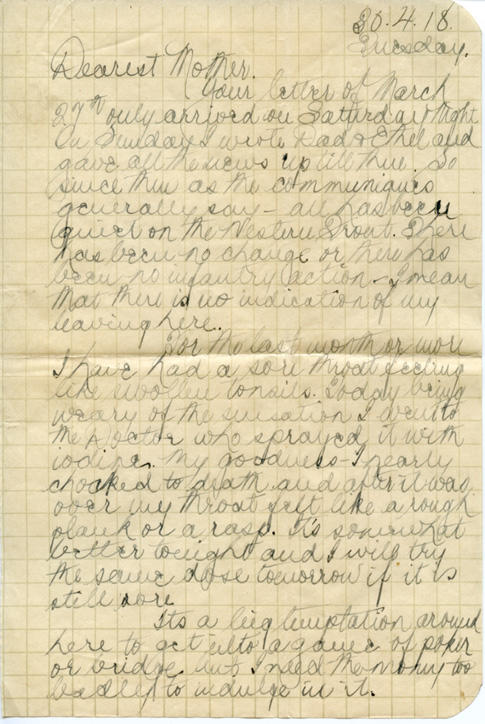 30.4.18.
Tuesday.
Dearest Mother.
Your letter of March
27th only arrived on Saturday Night
On Sunday I wrote Dad & Ethel and
gave all the news up till then. So
since then as the communiques
generally say - all has been
quiet on the Western Front. There
has been no change or there has
been no infantry action - I mean
that there is no indication of my
leaving here.
For the last month or more
I have had a sore throat feeling
like swollen tonsils. Today being
weary of the sensation I went to
the Doctor who sprayed it with
iodine. My goodness - I nearly
choked to death and after it was
over my throat felt like a rough
plank or a rasp. It's somewhat
better tonight and I will try
the same dose tomorrow if it is
still sore
Its a big temptation around
here to get into a game of poker
or bridge but I need the money too
badly to indulge in it.